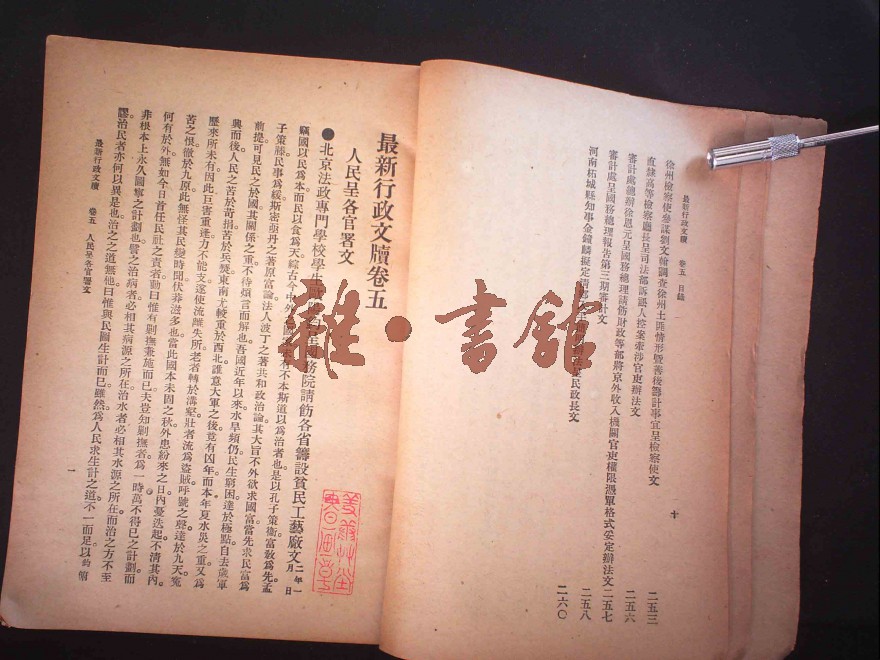 最新行政文牘 卷五 目錄
十
徐州檢察使參謀劉文翰調查徐州土匪情形暨善後籌計事宜呈檢察使文 二五三
直隸高等檢察廳長呈司法部訴訟人控案牽涉官吏辦法文 二五六
審計處總辦徐恩元呈國務總理請飭財政等部將京外收入機關官吏權限憑單格式妥定辦法文 二五七
審計處呈國務總理報告第三期審計文 二五八
河南柘城縣知事金 麟擬定清 民政長文 二六〇
最新行政文牘卷五
人民呈各官署文
●北京法政專門學校學生 務院請飭各省籌設貧民工藝廠文 二年一月 日
竊國以民爲本而民以食爲天綜古今中外 未有不本斯道以爲治者也是以孔子策衛富敎爲先孟
子策滕民事爲綏斯密亞丹之著原富論法人波丁之著共和政治論其大旨不外欲求國富當先求民富爲
前提可見民之於國其關係之重不待煩言而解也吾國近年以來水旱頻仍民生窮困達於極點自去歲軍
興而後人民之苦於苛捐苦於兵燹東南尤較重於西北誰意大軍之後竟有凶年而本年夏水災之重又爲
歷來所未有因此巨害重逢力不能支遂使流離失所老者轉於溝壑壯者流爲盜賊呼號之聲達於九天冤
苦之恨徹於九原此無怪其民變時聞伏莽滋多也當此國本未固之秋外患紛來之日內憂迭起不清其內
何有於外無如今日首任民社之責者動曰惟有剿撫兼施而已夫豈知剿撫者爲一時萬不得已之計劃而
非根本上永久圖寧之計劃也譬之治病者必相其病源之所在治水者必相其水源之所在而治之方不至
謬治民者亦何以異是也治之之道無他曰惟與民圖生計而已雖然爲人民求生計之道不一而足以約
最新行政文牘 卷五 人民呈各官署文
一
雜·書館